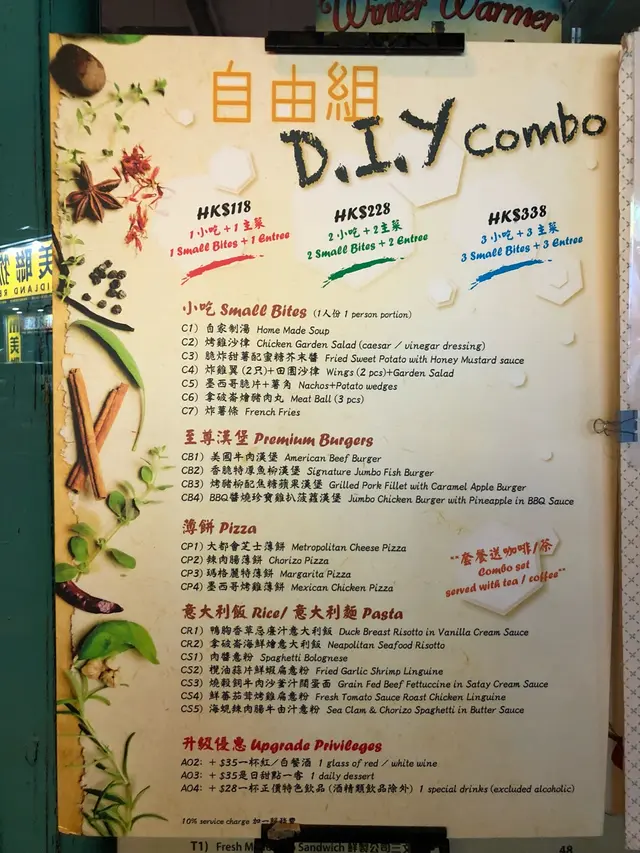 Winter Warmer
自由組
D.I.Y Combo
HK$118
1小吃 + 1主菜
1 Small Bites + 1 Entree
HK$228
2小吃 + 2主菜
2 Small Bites + 2 Entree
HK$338
3小吃 + 3主菜
3 Small Bites + 3 Entree
小吃 Small Bites (1人份 1 person portion)
C1) 自家制湯 Home Made Soup
C2) 烤雞沙律 Chicken Garden Salad (caesar / vinegar dressing)
C3) 脆炸甜薯配蜜糖芥末醬 Fried Sweet Potato with Honey Mustard sauce
C4) 炸雞翼 (2只)+田園沙律 Wings (2 pcs)+Garden Salad
C5) 墨西哥脆片+薯角 Nachos+Potato wedges
C6) 拿破崙燴豬肉丸 Meat Ball (3 pcs)
C7) 炸薯條 French Fries
至尊漢堡 Premium Burgers
CB1) 美國牛肉漢堡 American Beef Burger
CB2) 香脆特厚魚柳漢堡 Signature Jumbo Fish Burger
CB3) 烤豬柳配焦糖蘋果漢堡 Grilled Pork Fillet with Caramel Apple Burger
CB4) BBQ醬燒珍寶雞扒菠蘿漢堡 Jumbo Chicken Burger with Pineapple in BBQ Sauce
薄餅 Pizza
CP1) 大都會芝士薄餅 Metropolitan Cheese Pizza
CP2) 辣肉腸薄餅 Chorizo Pizza
CP3) 瑪格麗特薄餅 Margarita Pizza
CP4) 墨西哥烤雞薄餅 Mexican Chicken Pizza
**套餐送咖啡/茶
Combo set
served with tea / coffee**
意大利飯 Rice/ 意大利麵 Pasta
CR1) 鴨胸香草忌廉汁意大利飯 Duck Breast Risotto in Vanilla Cream Sauce
CR2) 拿破崙海鮮燴意大利飯 Neapolitan Seafood Risotto
CS1) 肉醬意粉 Spaghetti Bolognese
CS2) 欖油蒜片鮮蝦扁意粉 Fried Garlic Shrimp Linguine
CS3) 燒穀飼牛肉沙爹汁闊蛋面 Grain Fed Beef Fettuccine in Satay Cream Sauce
CS4) 鮮蕃茄茸烤雞扁意粉 Fresh Tomato Sauce Roast Chicken Linguine
CS5) 海蜆辣肉腸牛油汁意粉 Sea Clam & Chorizo Spaghetti in Butter Sauce
升級優惠 Upgrade Privileges
A02: + $35一杯紅/白餐酒 1 glass of red / white wine
A03: + $35是日甜點一客 1 daily dessert
A04: + $28一杯正價特色飲品 (酒精類飲品除外) 1 special drinks (excluded alcoholic)
10% service charge 加一服務費
T1) Fresh Sandwich 48
美聯物
IDLAND RE
美